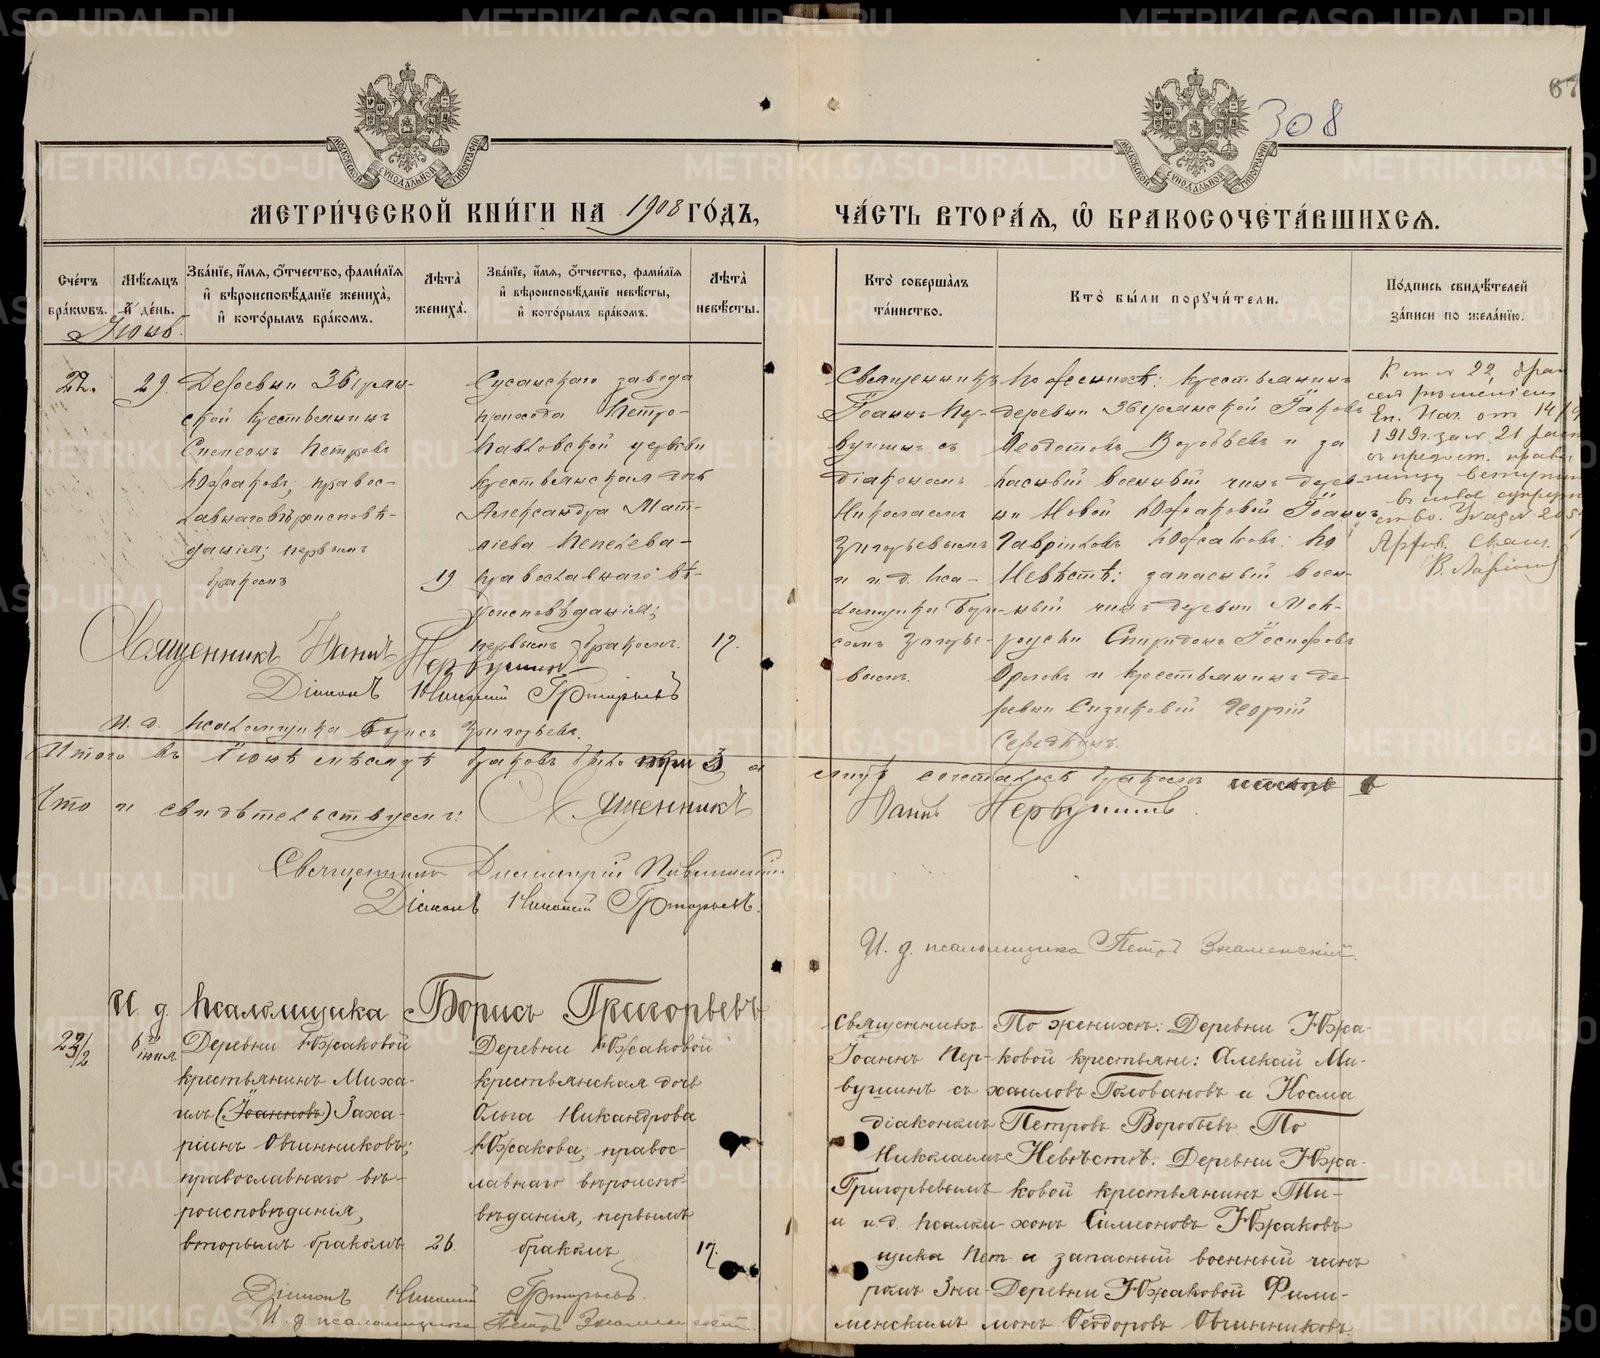 308
67
МЕТРИЧЕСКОЙ КНИГИ НА 1908 ГОДЪ,
ЧАСТЬ ВТОРАЯ, Ѽ БРАКОСОЧЕТАВШИХСЯ.
Счетъ браковъ.
Мѣсяцъ и день.
Званіе, имя, отчество, фамилія и вѣроисповѣданіе жениха, и которымъ бракомъ.
Лѣта жениха.
Званіе, имя, отчество, фамилія и вѣроисповѣданіе невѣсты, и которымъ бракомъ.
Лѣта невѣсты.
Кто совершалъ таинство.
Кто были поручители.
Подпись свидѣтелей записи по желанію.
22.
29.
Деревни
ской крестьянинъ
Симеонъ Петровъ
Южаковъ, правос-
лавнаго вѣроисповѣ-
данія; первымъ
бракомъ
19.
Сусанскаго завода
прихода Петро-
Павловской церкви
крестьянская дочь
Александра Мат-
фіева Пепелева-
православнаго вѣ-
роисповѣданія;
первымъ бракомъ.
17.
Священникъ
Іоаннъ Пер-
вушинъ съ
діакономъ
Николаемъ
Григорьевымъ
и и. д. пса-
ломщика Бори-
сомъ Григорье-
вымъ.
По женихѣ: крестьянинъ
деревни Іаковъ
Ѳеодотовъ Воробьевъ и за
пасный военный чинъ дерев-
ни Новой Южаковой Іоаннъ
Гавріиловъ Южаковъ: По
Невѣстѣ: запасный воен-
ный чинъ деревни Мок-
роусы Спиридонъ Іосифовъ
Орловъ и крестьянинъ де-
ревни Сизиковой Георгій
Середкинъ.
Священникъ Іоаннъ Первушинъ
Діаконъ Николай Григорьевъ
И. д. псаломщика Борисъ Григорьевъ.
Итого въ Іюнѣ мѣсяцѣ браковъ было три 3, а
Что и свидѣтельствуемъ: Священникъ Іоаннъ Первушинъ.
Священникъ Димитрій
Діаконъ Николай Григорьевъ.
И. д. псаломщика Петръ Знаменскій.
И. д. Псаломщика Борисъ Григорьевъ
6го
іюня
Деревни Южаковой
крестьянинъ Миха-
илъ (Іоанновъ) Заха-
ріинъ Овчинниковъ;
православнаго вѣ-
роисповѣдинія,
вторымъ бракомъ
26.
Деревни Южаковой
крестьянская дочь
Ольга Никандрова
Южакова; правос-
лавнаго вѣроиспо-
вѣданія, первымъ
бракомъ
17.
Священникъ
Іоаннъ Пер-
вушинъ съ
діакономъ
Николаемъ
Григорьевымъ
и и.д. псалом-
щика Пет-
ромъ Зна-
менскимъ
По женихѣ: Деревни Южа-
ковой крестьяне: Алексій Ми-
хаиловъ Головановъ и Косма
Петровъ Воробьевъ По
Невѣстѣ: Деревни Южа-
ковой крестьянинъ Ти-
хонъ Симеоновъ Южаковъ
и запасный военный чинъ
Деревни Южаковой Фили-
монъ Ѳеодоровъ Овчинниковъ.
Діаконъ Николай Григорьевъ.
И. д. псаломщика Петръ Знаменскій.
METRIKI.GASO-URAL.RU